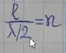 ℓ/(λ/2) = n